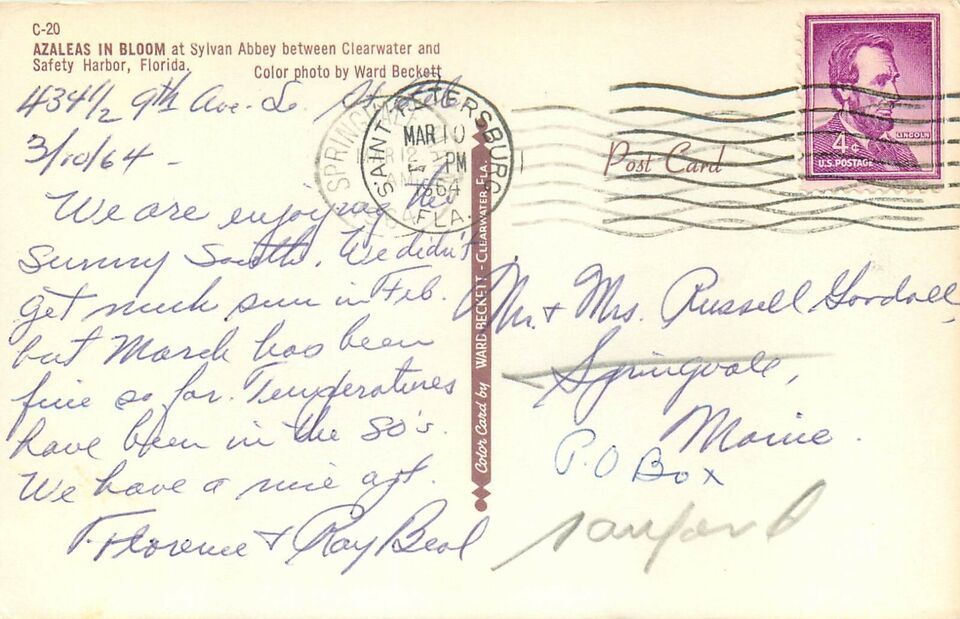 C-20
AZALEAS IN BLOOM at Sylvan Abbey between Clearwater and
Safety Harbor, Florida.
Color photo by Ward Beckett
434 1/2 9th Ave. So.
3/10/64 -
We are enjoying the
Sunny South. We didn't
get much sun in Feb.
but March has been
fine so far. Temperatures
have been in the 80's.
We have a nice apt.
Florence & Ray Beal
SAINT PETERSBURG
MAR 10
PM
1964
FLA.
SPRING
AM
Color Card by WARD BECKETT - CLEARWATER, FLA.
Post Card
LINCOLN
4¢
U.S. POSTAGE
Mr. & Mrs. Russell Goodall
Springvale,
Maine.
P.O Box
Sanford